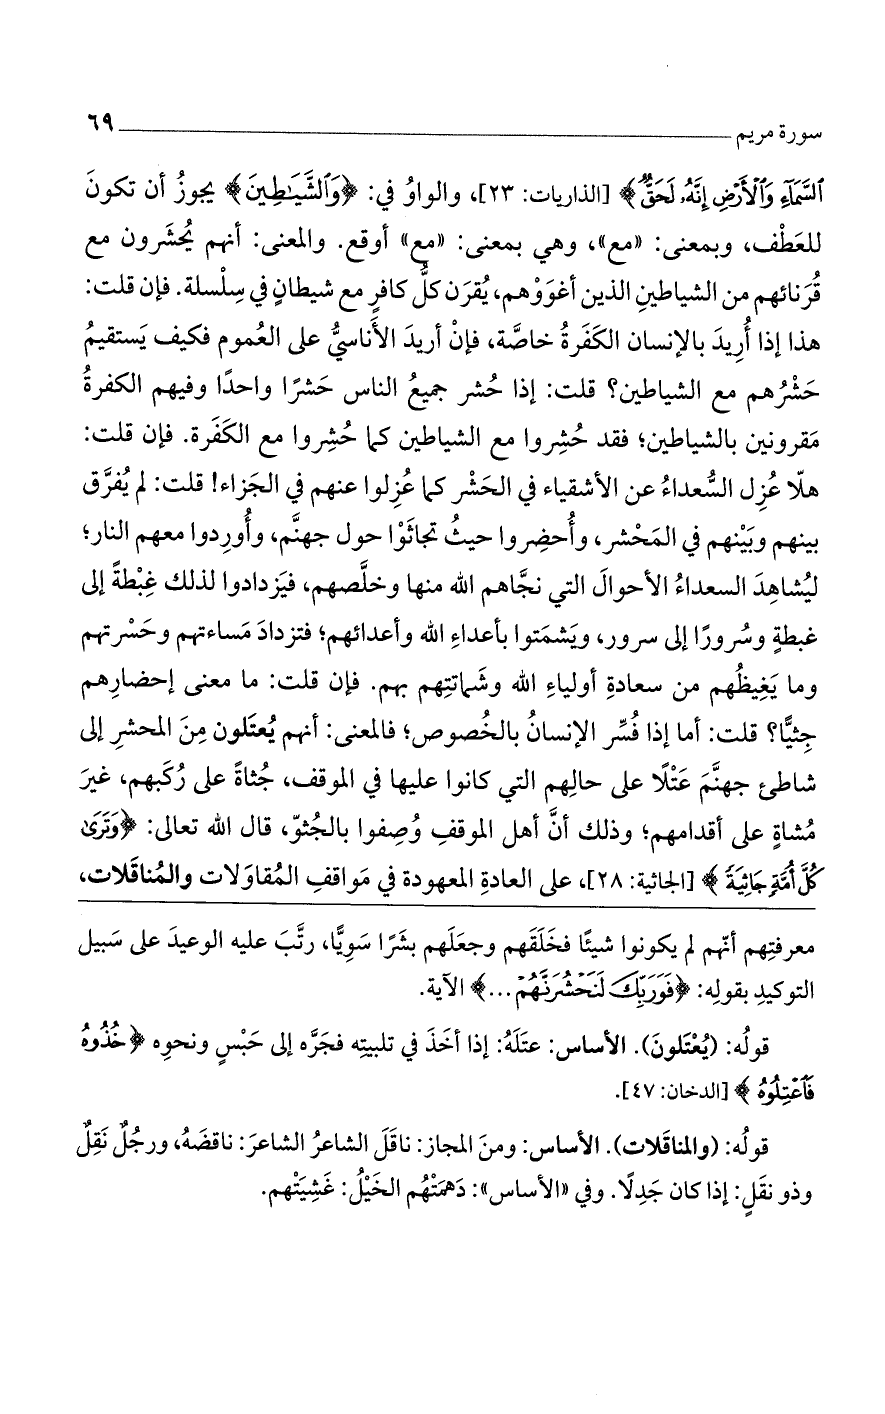 سورة مريم ٦٩
ٱلسَّمَآءِ وَٱلْأَرْضِ إِنَّهُۥ لَحَقٌّ﴾ [الذاريات: ٢٣]، والواوُ في: ﴿وَٱلشَّيَـٰطِينَ﴾ يجوزُ أن تكونَ
للعَطْف، وبمعنى: «مع»، وهي بمعنى: «مع» أوقع. والمعنى: أنهم يُحشَرون مع
قُرَنائهم من الشياطينِ الذين أغوَوْهم، يُقرَن كلُّ كافرٍ مع شيطانٍ في سِلْسلة. فإن قلت:
هذا إذا أُرِيدَ بالإنسان الكَفَرةُ خاصَّة، فإنْ أريدَ الأَناسيُّ على العُموم فكيف يَستقيمُ
حَشْرُهم مع الشياطين؟ قلت: إذا حُشر جميعُ الناس حَشرًا واحدًا وفيهم الكفرةُ
مَقرونين بالشياطين؛ فقد حُشِروا مع الشياطين كما حُشِروا مع الكَفَرة. فإن قلت:
هلّا عُزِل السُّعداءُ عن الأشقياء في الحَشْر كما عُزِلوا عنهم في الجَزاء! قلت: لم يُفرَّق
بينهم وبَيْنهم في المَحْشر، وأُحضِروا حيثُ تجاثَوْا حول جهنَّم، وأُورِدوا معهم النار؛
ليُشاهِدَ السعداءُ الأحوالَ التي نجَّاهم الله منها وخلَّصهم، فيَزدادوا لذلك غِبْطةً إلى
غبطةٍ وسُرورًا إلى سرور، ويَشمَتوا بأعداءِ الله وأعدائهم؛ فتزدادَ مَساءتهم وحَسْرتهم
وما يَغِيظُهم من سعادةِ أولياءِ الله وشَماتتِهم بهم. فإن قلت: ما معنى إحضارِهم
جِثيًّا؟ قلت: أما إذا فُسِّر الإنسانُ بالخُصوص؛ فالمعنى: أنهم يُعتَلون مِنَ المحشرِ إلى
شاطئ جهنَّمَ عَتْلًا على حالِهم التي كانوا عليها في الموقف، جُثاةً على رُكَبهم، غيرَ
مُشاةٍ على أقدامهم؛ وذلك أنَّ أهل الموقفِ وُصِفوا بالجُثوّ، قال الله تعالى: ﴿وَتَرَىٰ
كُلَّ أُمَّةٍ جَاثِيَةً﴾ [الجاثية: ٢٨]، على العادةِ المعهودة في مَواقفِ المُقاوَلات والمُناقَلات،
معرفتِهم أنّهم لم يكونوا شيئًا فخَلَقَهم وجعلَهم بشَرًا سَويًّا، رتَّبَ عليه الوعيدَ على سَبيل
التوكيدِ بقولِه: ﴿فَوَرَبِّكَ لَنَحْشُرَنَّهُمْ...﴾ الآية.
قولُه: (يُعْتَلونَ). الأساس: عتَلَهُ: إذا أخَذَ في تلبيتِه فجَرَّه إلى حَبْسٍ ونحوِه ﴿خُذُوهُ
فَٱعْتِلُوهُ﴾ [الدخان: ٤٧].
قولُه: (والمناقَلات). الأساس: ومنَ المجاز: ناقَلَ الشاعرُ الشاعرَ: ناقضَهُ، ورجُلٌ نَقِلٌ
وذو نقَلٍ: إذا كان جَدِلًا. وفي «الأساس»: دَهمَتْهُم الخَيْلُ: غَشِيَتْهم.